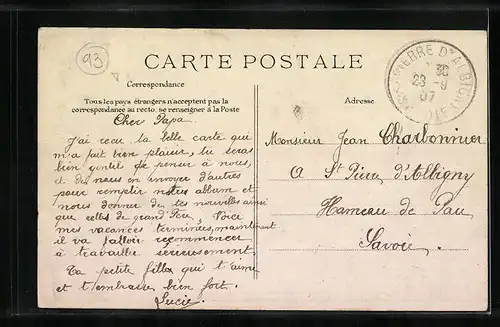 93
CARTE POSTALE
Correspondance
Tous les pays étrangers n'acceptent pas la
correspondance au recto. se renseigner à la Poste
Adresse
ST PIERRE D'ALBIGNY
30
23 - 9
07
Cher Papa.
J'ai reçu ta belle carte qui
m'a fait bien plaisir, tu serais
bien gentil de penser à nous,
et de nous en envoyer d'autres
pour remplir notre album et
nous donner de tes nouvelles ainsi
que celles de grand Père, Voici
mes vacances terminées, maintenant
il va falloir recommencer
à travailler sérieusement.
Ta petite fille qui t'aime
et t'embrasse bien fort.
Lucie.
Monsieur Jean Charbonnier
à St Pierre d'Albigny
Hameau de Pau
Savoie